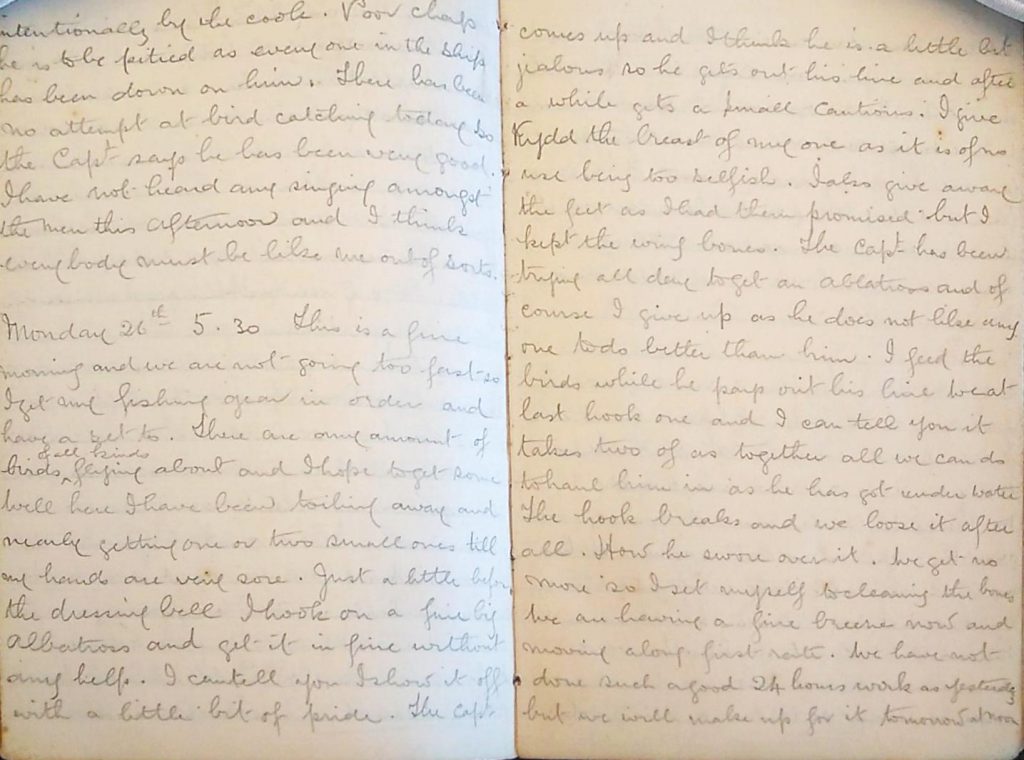 intentionally by the cook. Poor chap
he is to be pitied as every one in the ship
has been down on him. There has been
no attempt at bird catching today so
the Capt says he has been very good.
I have not heard any singing amongst
the men this afternoon and I think
everybody must be like me out of sorts.
Monday 26th 5.30 This is a fine
morning and we are not going too fast so
I get my fishing gear in order and
have a set to. There are any amount of
birds of all kinds flying about and I hope to get some
well here I have been toiling away and
nearly getting one or two small ones till
my hands are very sore. Just a little before
the dressing bell I hook on a fine big
Albatross and get it in fine without
any help. I can tell you I show it off
with a little bit of pride. The Capt
comes up and I think he is a little bit
jealous so he gets out his line and after
a while gets a small cautious. I give
Kydd the breast of my one as it is of no
use being too selfish. I also give away
the feet as I had them promised but I
kept the wing bones. The Capt has been
trying all day to get an Albatross and of
course I give up as he does not like any
one to do better than him. I feed the
birds while he pays out his line we at
last hook one and I can tell you it
takes two of us together all we can do
to haul him in as he has got under water
The hook breaks and we loose it after
all. How he swore over it. We get no
more so I set myself to cleaning the bones
We are having a fine breeze now and
moving along first rate. We have not
done such a good 24 hours work as yesterday
but we will make up for it tomorrow at noon